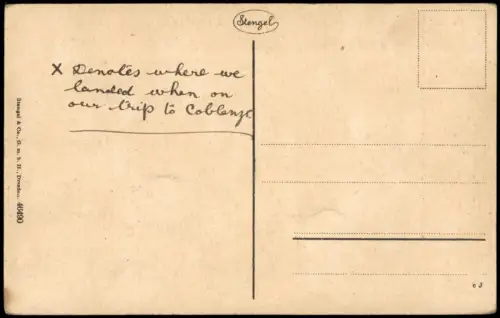 Stengel
X Denotes where we
landed when on
our trip to Coblenz
Stengel & Co., G. m. b. H., Dresden. 46490